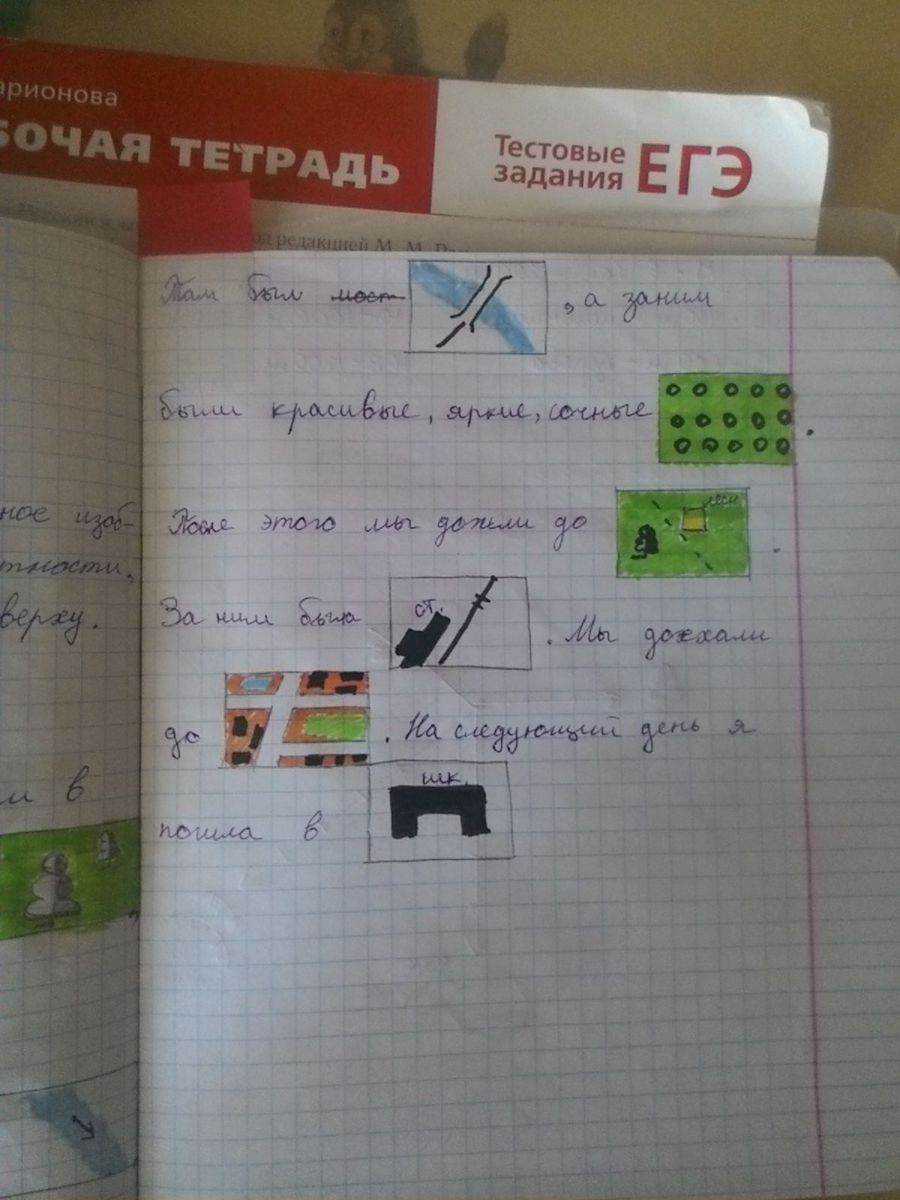 арионова
БОЧАЯ ТЕТРАДЬ
Тестовые
задания ЕГЭ
од редакцией М. М.
ное изоб-
тности,
верху.
и в
Там был мост , а заним
были красивые, яркие, сочные .
После этого мы дошли до лесн .
За ним была ст. . Мы доехали
до . На следующий день я
пошла в шк.